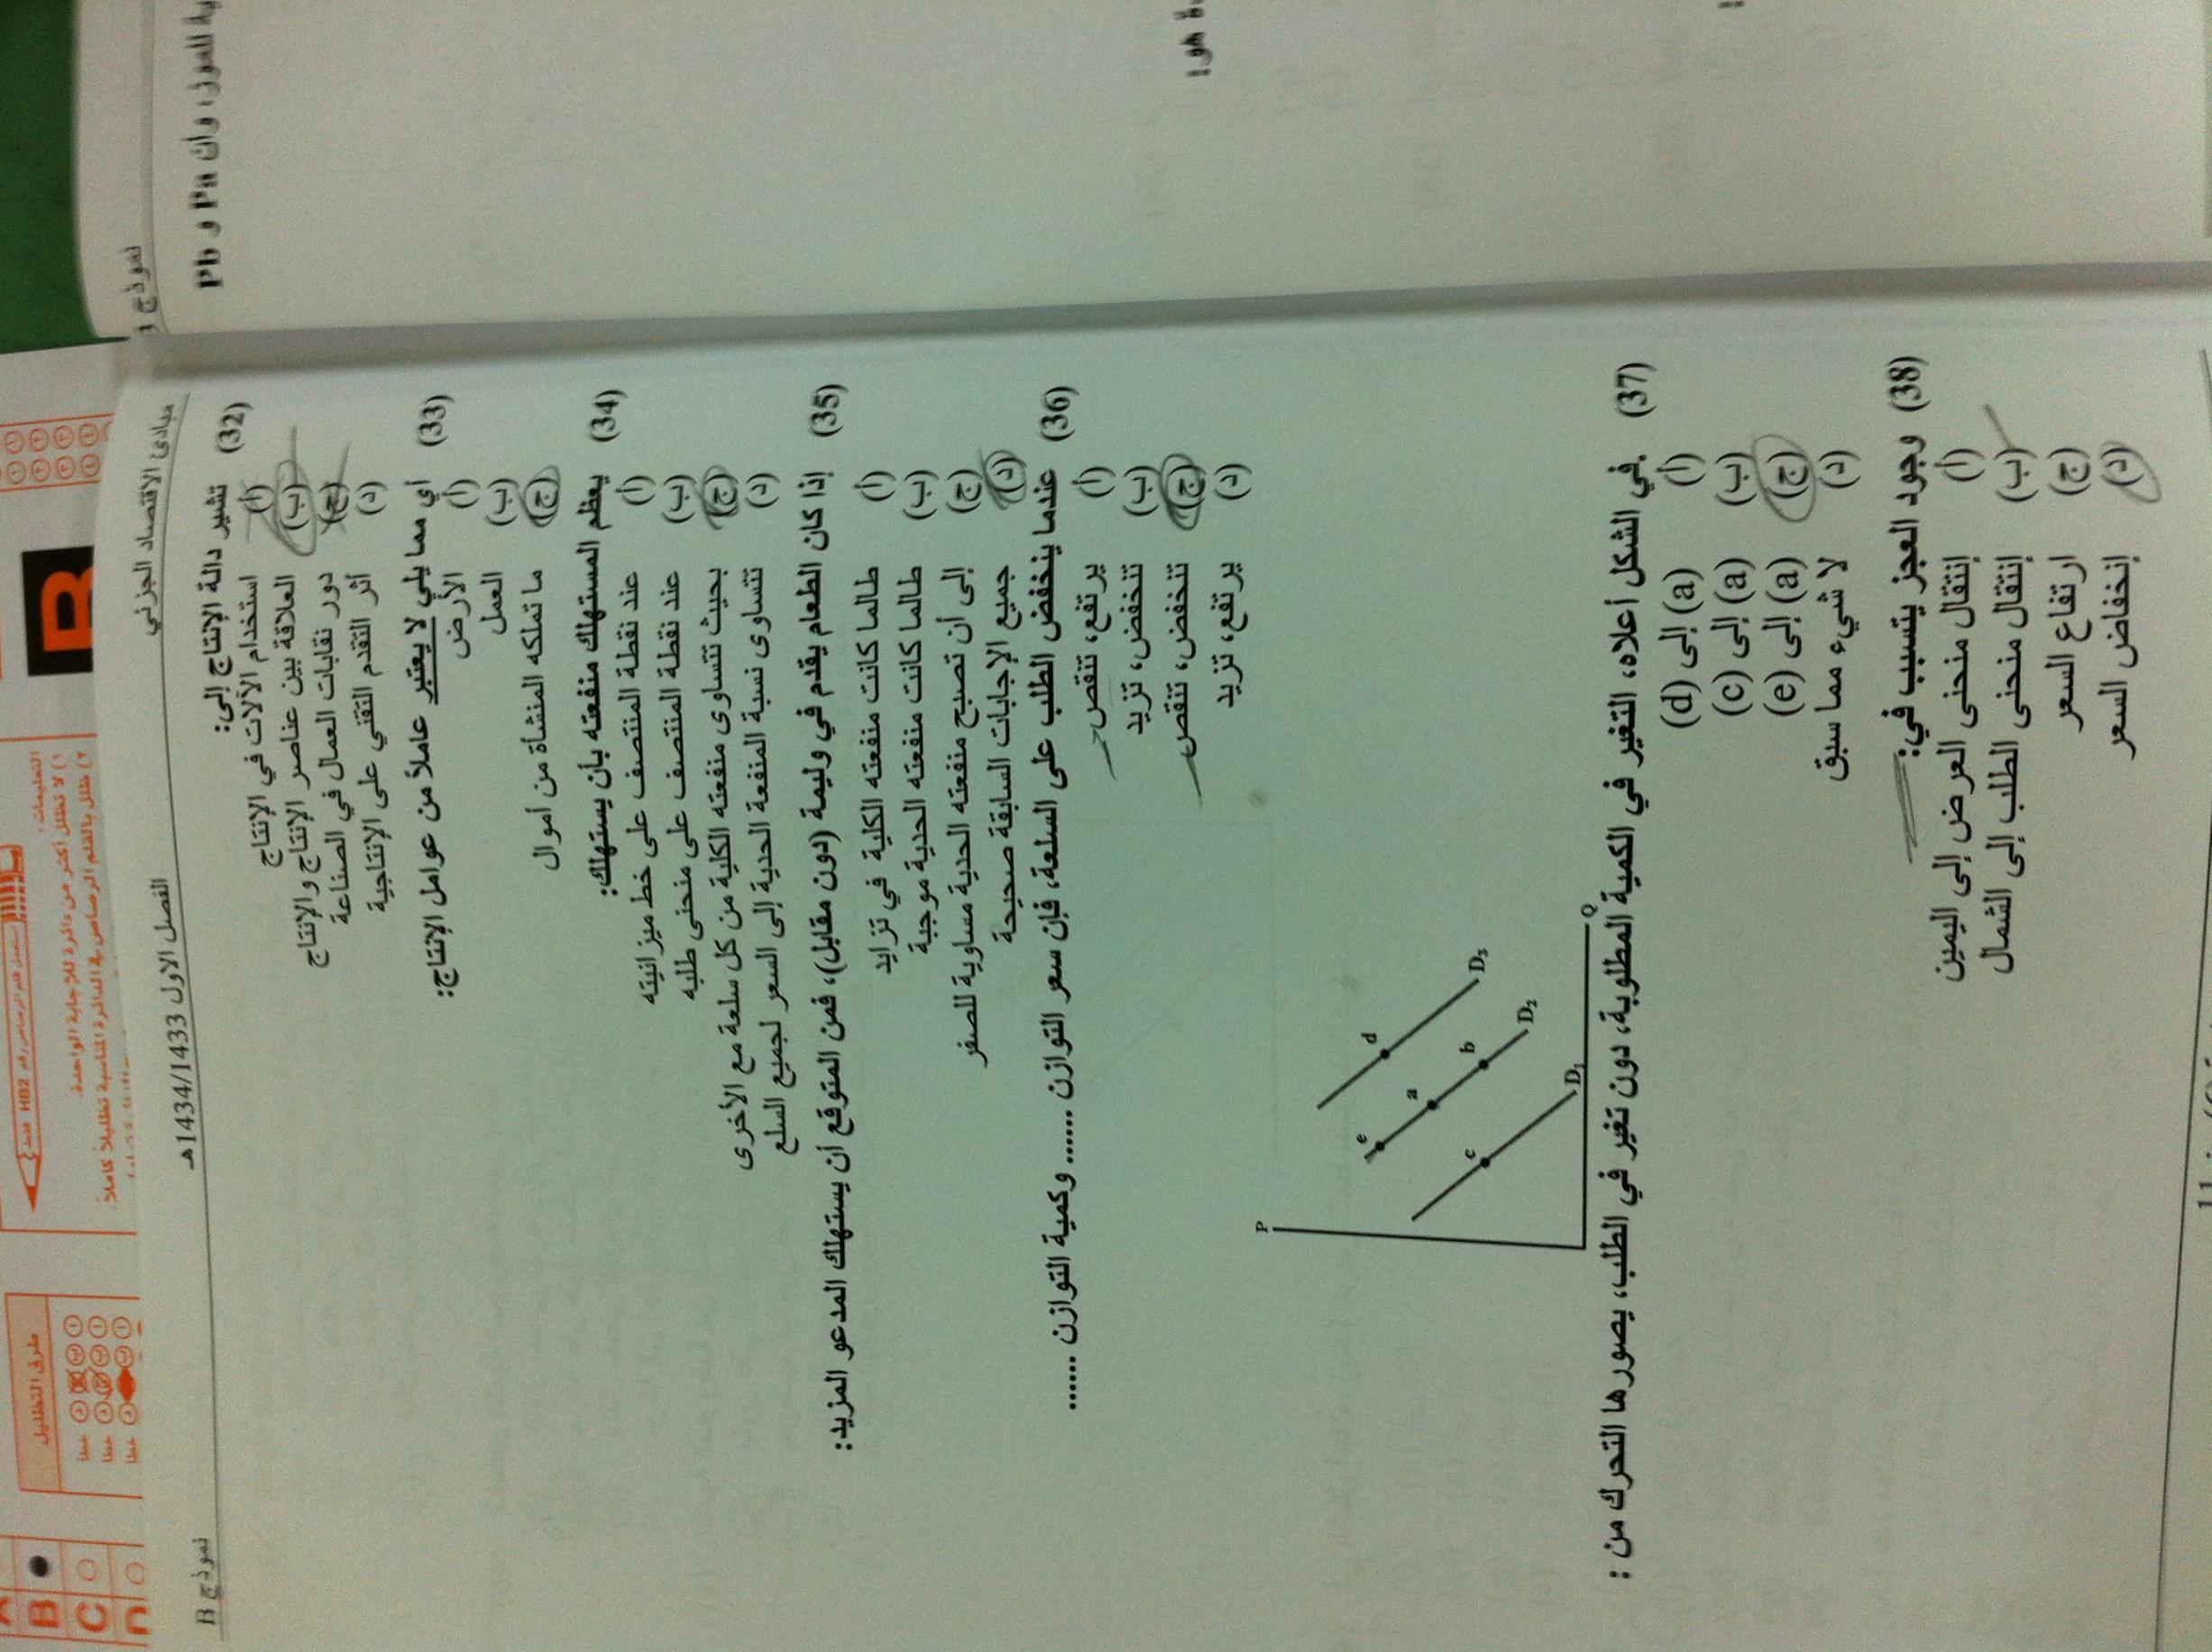 نموذج B
الفصل الاول 1433/1434هـ
مبادئ الاقتصاد الجزئي
(32) تشير دالة الإنتاج إلى:
(أ) استخدام الآلات في الإنتاج
(ب) العلاقة بين عناصر الإنتاج والإنتاج
(ج) دور نقابات العمال في الصناعة
(د) أثر التقدم التقني على الإنتاجية
(33) أي مما يلي لا يعتبر عاملاً من عوامل الإنتاج:
(أ) الأرض
(ب) العمل
(ج) ما تملكه المنشأة من أموال
(34) يعظم المستهلك منفعته بأن يستهلك:
(أ) عند نقطة المنتصف على خط ميزانيته
(ب) عند نقطة المنتصف على منحنى طلبه
(ج) بحيث تتساوى منفعته الكلية من كل سلعة مع الأخرى
(د) تتساوى نسبة المنفعة الحدية إلى السعر لجميع السلع
(35) إذا كان الطعام يقدم في وليمة (دون مقابل)، فمن المتوقع أن يستهلك المدعو المزيد:
(أ) طالما كانت منفعته الكلية في تزايد
(ب) طالما كانت منفعته الحدية موجبة
(ج) إلى أن تصبح منفعته الحدية مساوية للصفر
(د) جميع الإجابات السابقة صحيحة
(36) عندما ينخفض الطلب على السلعة، فإن سعر التوازن ...... وكمية التوازن ......
(أ) يرتفع، تنقص
(ب) تنخفض، تزيد
(ج) تنخفض، تنقص
(د) يرتفع، تزيد
P
e
a
d
c
b
D3
D2
D1
Q
(37) في الشكل أعلاه، التغير في الكمية المطلوبة، دون تغير في الطلب، يصورها التحرك من :
(أ) (a) إلى (d)
(ب) (a) إلى (c)
(ج) (a) إلى (e)
(د) لا شيء مما سبق
(38) وجود العجز يتسبب في:
(أ) إنتقال منحنى العرض إلى اليمين
(ب) إنتقال منحنى الطلب إلى الشمال
(ج) ارتفاع السعر
(د) إنخفاض السعر
نموذج
Pa و Pb
التعليمات :
استعمل قلم الرصاص رقم HB2 فقط
١) لا تظلل أكثر من دائرة للاجابة الواحدة.
٢) ظلل بالقلم الرصاص في الدائرة المناسبة تظليلاً كاملاً.
طرق التظليل
خطا
خطا
خطا
B
B
C
D